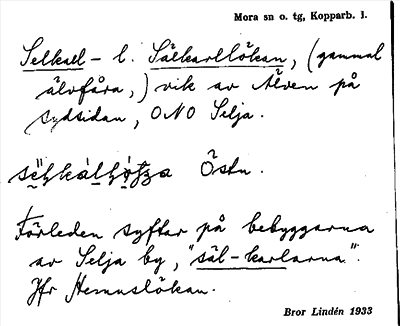 Mora sn o. tg, Kopparb. l.
Selkael – l. Sälkarllökan, (gammal
älvfåra,) vik av Älven på
sydsidan, ONO Selja.
Östn.
Förleden syftar på bebyggarna
av Selja by, "säl-karlarna".
Jfr Hemuslökan.
Bror Lindén 1933